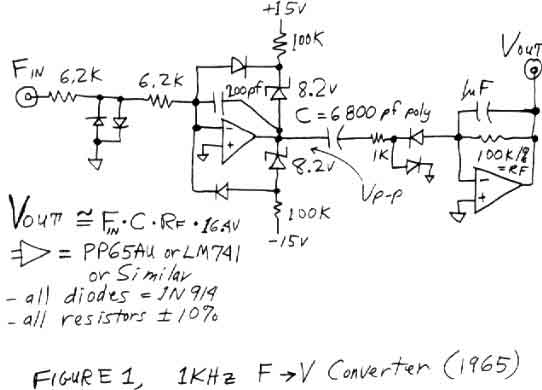 +15V
100K
VOUT
FIN
6.2K
6.2K
200pf
8.2V
C = 6800 pf poly
1μF
1K
100K/1%
=RF
8.2V
Vp-p
100K
-15V
VOUT ≅ FIN·C·RF·16.4V
= PP65AU or LM741
or Similar
- all diodes = 1N914
- all resistors ±10%
FIGURE 1, 1KHz F→V Converter (1965)